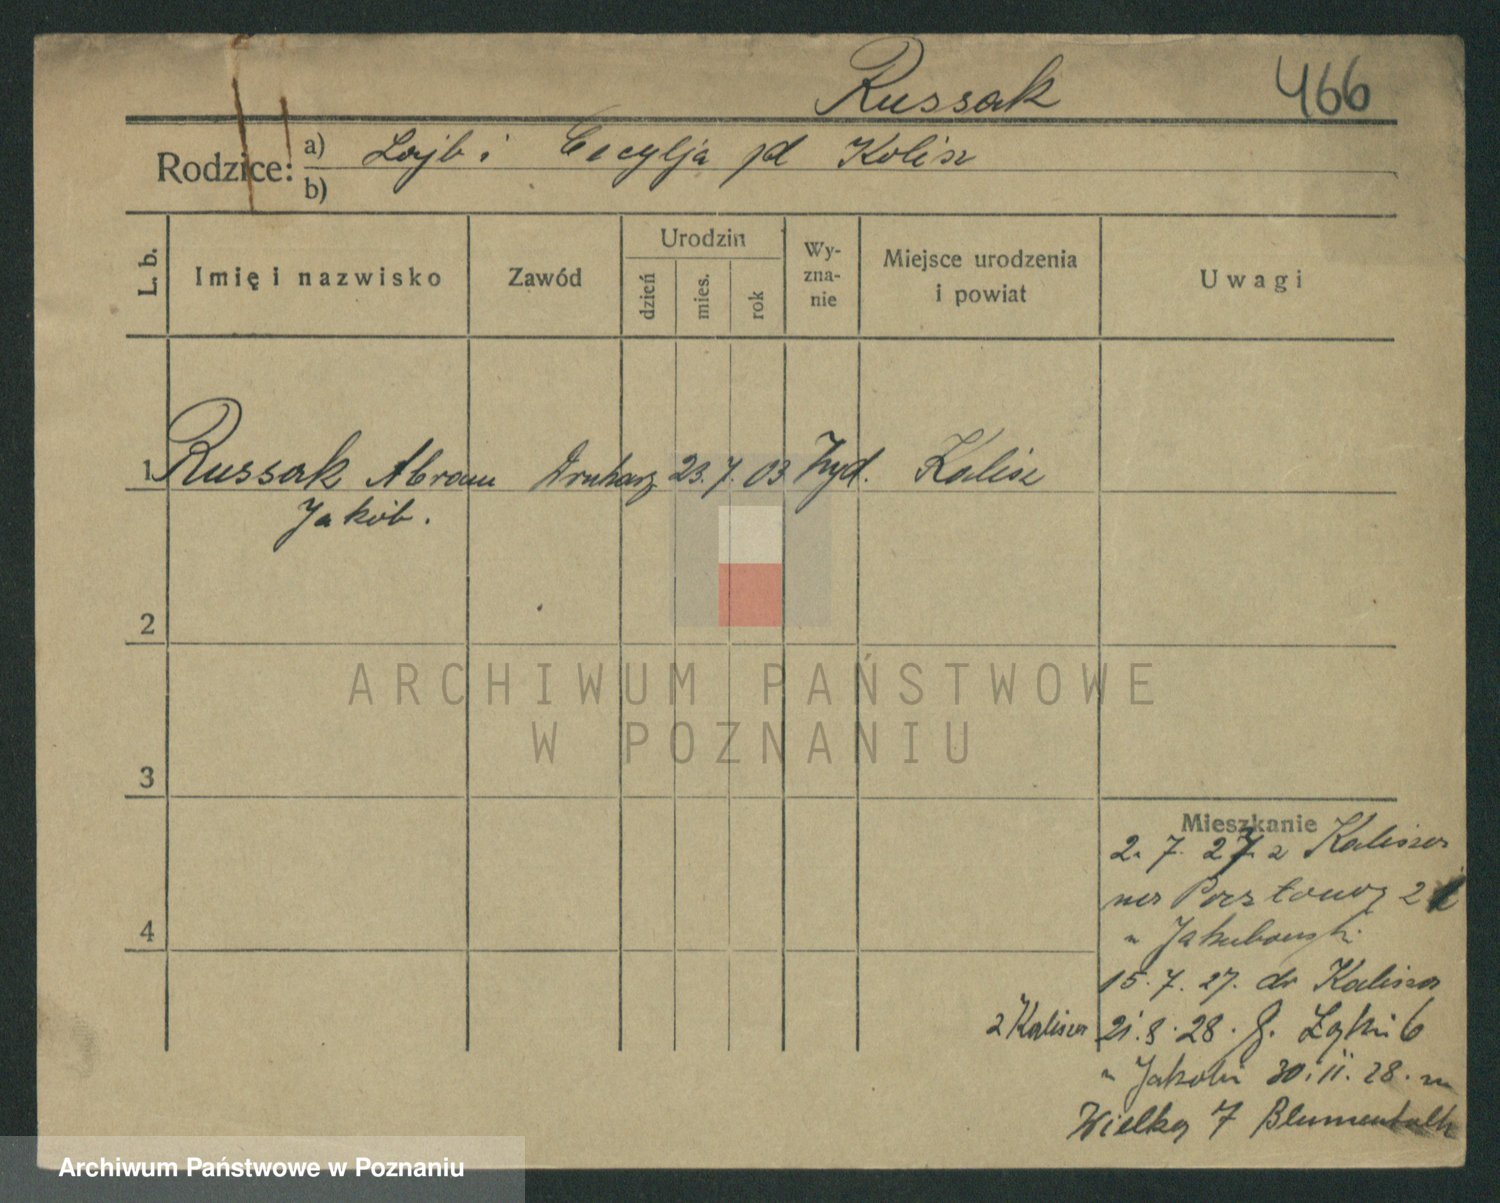 Russak 466
Rodzice: a) Lajb i Cecylja pd Kalisz
b)
L. b. Imię i nazwisko Zawód Urodzin dzień mies. rok Wy-zna-nie Miejsce urodzenia i powiat Uwagi
1 Russak Abram Drukarz 23. 7. 03 żyd. Kalisz
Jakób.
2
ARCHIWUM PAŃSTWOWE
W POZNANIU
3
Mieszkanie
2. 7. 27 z Kalisza
Pocztową 2
" Jakubowski
4
15. 7. 27. do Kalisza
z Kalisza 21. 8. 28. G. Łąki 6
" Jakobi 30. 11. 28. na
Wielką 7 Blumenthal
Archiwum Państwowe w Poznaniu